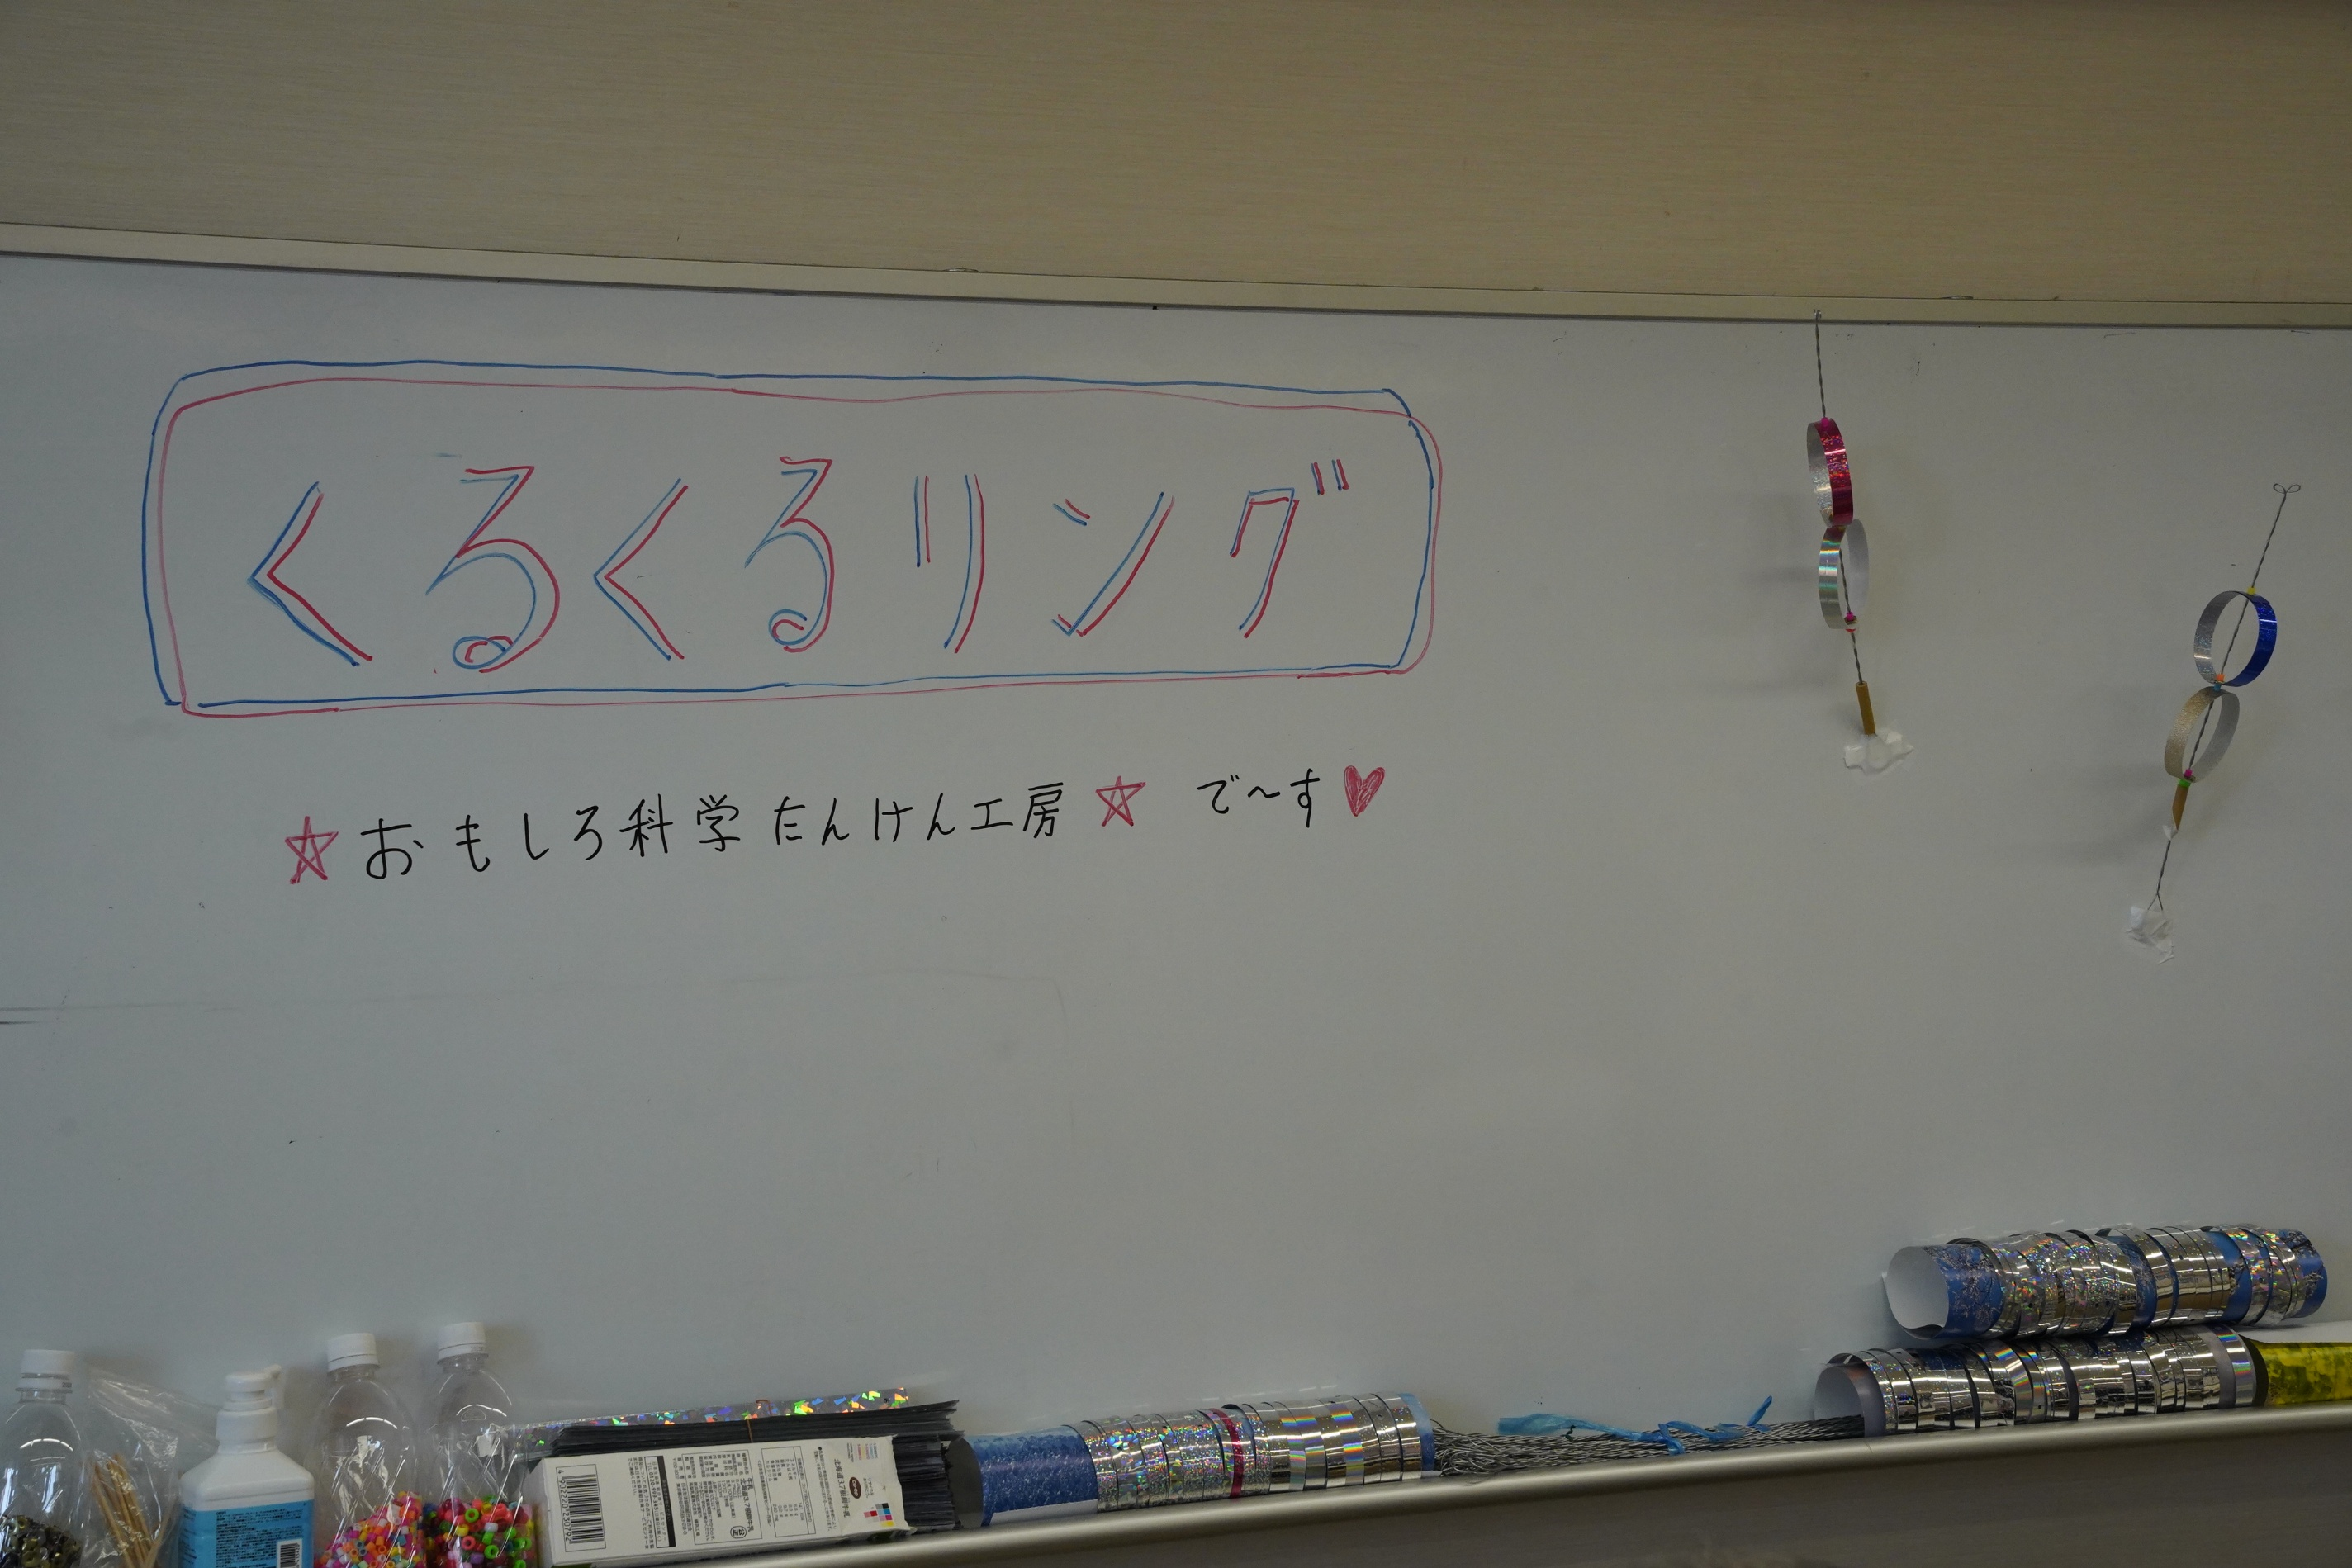 くるくるリング
☆おもしろ科学たんけん工房☆ で〜す♥